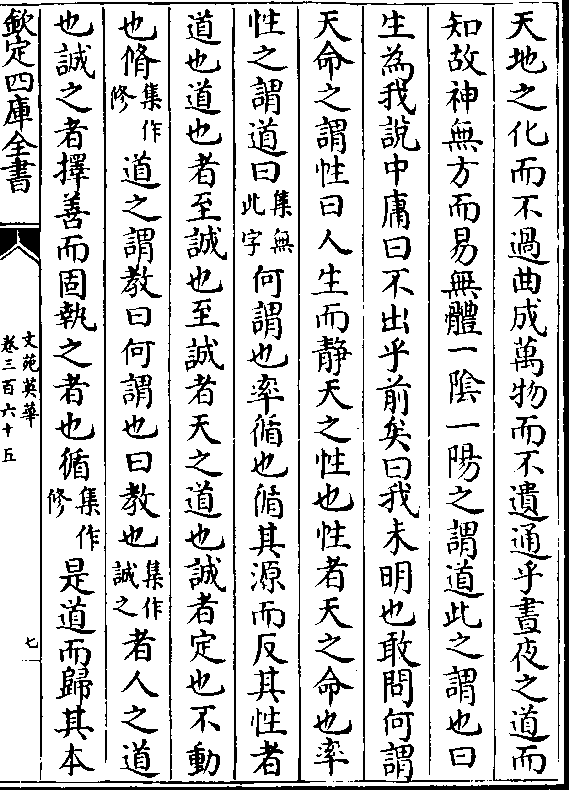 天地之化而不過曲成萬物而不遺通乎晝夜之道而
知故神無方而易無體一陰一陽之謂道此之謂也曰
生為我說中庸曰不出乎前矣曰我未明也敢問何謂
天命之謂性曰人生而静天之性也性者天之命也率
性之謂道曰集無此字何謂也率循也循其源而反其性者
道也道也者至誠也至誠者天之道也誠者定也不動
也脩集作修道之謂教曰何謂也曰教也集作誠之者人之道
也誠之者擇善而固執之者也循集作修是道而歸其本
欽定四庫全書
文苑英華
卷三百六十五
七